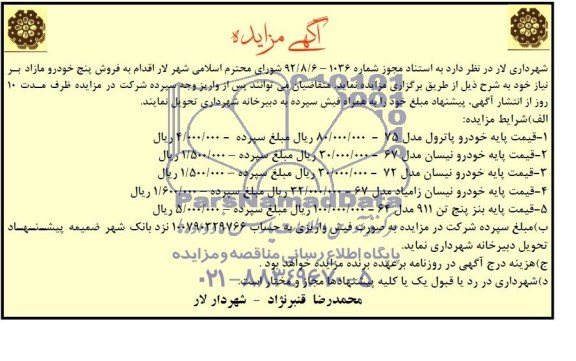 آگهی مزایده
شهرداری لار در نظر دارد به استناد مجوز شماره ۱۰۳۶ – ۹۲/۸/۶ شورای محترم اسلامی شهر لار اقدام به فروش پنج خودرو مازاد بر
نیاز خود به شرح ذیل از طریق برگزاری مزایده نماید. متقاضیان می توانند، پس از واریز وجه سپرده شرکت در مزایده ظرف مدت ۱۰
روز از انتشار آگهی، پیشنهاد مبلغ خود را به همراه فیش سپرده به دبیرخانه شهرداری تحویل نمایند.
الف)شرایط مزایده:
۱-قیمت پایه خودرو پاترول مدل ۷۵ – ۸۰/۰۰۰/۰۰۰ ریال مبلغ سپرده – ۴/۰۰۰/۰۰۰ ریال
۲-قیمت پایه خودرو نیسان مدل ۶۷ – ۳۰/۰۰۰/۰۰۰ ریال مبلغ سپرده – ۱/۵۰۰/۰۰۰ ریال
۳-قیمت پایه خودرو نیسان مدل ۷۲ – ۳۰/۰۰۰/۰۰۰ ریال مبلغ سپرده – ۱/۵۰۰/۰۰۰ ریال
۴-قیمت پایه خودرو نیسان زامیاد مدل ۶۷ – ۳۲/۰۰۰/۰۰۰ ریال مبلغ سپرده – ۱/۶۰۰/۰۰۰ ریال
ParsNamadData
۵-قیمت پایه بنز پنج تن ۹۱۱ مدل ۶۴ – ۱۰۰/۰۰۰/۰۰۰ ریال مبلغ سپرده – ۵/۰۰۰/۰۰۰ ریال
ب)مبلغ سپرده شرکت در مزایده به صورت فیش واریزی به حساب ۱۰۰۷۹۰۳۲۹۷۶۶ نزد بانک شهر ضمیمه پیشنهاد
تحویل دبیرخانه شهرداری نماید.
پایگاه اطلاع رسانی مناقصه و مزایده
ج)هزینه درج آگهی در روزنامه برعهده برنده مزایده خواهد بود.
۰۲۱-۸۸۳۴۹۶۷۰-۵
د)شهرداری در رد یا قبول یک یا کلیه پیشنهادها مجاز و مختار است.
محمدرضا قنبرنژاد – شهردار لار